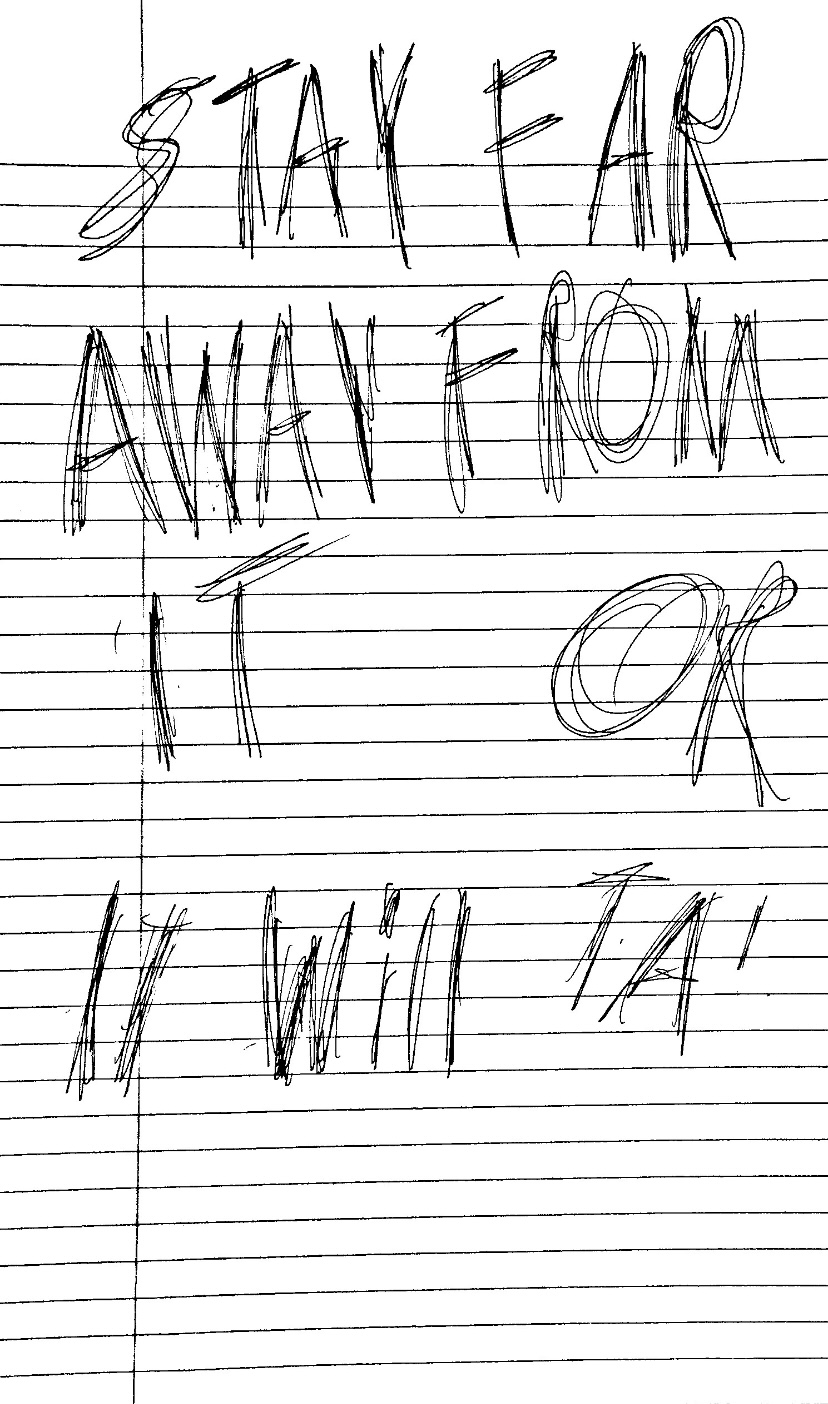 STAY FAR
AWAY FROM
IT OR
IT Will TA'